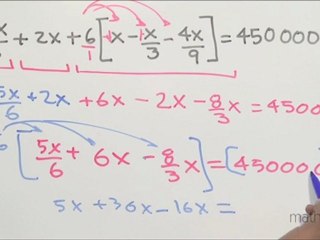 x/6 + 2x + 6/1 [1x - 1x/3 - 4x/9] = 450000
5x/6 + 2x + 6x - 2x - 8/3 x = 4500
6 [5x/6 + 6x - 8/3 x] = [450000
5x + 36x - 16x =